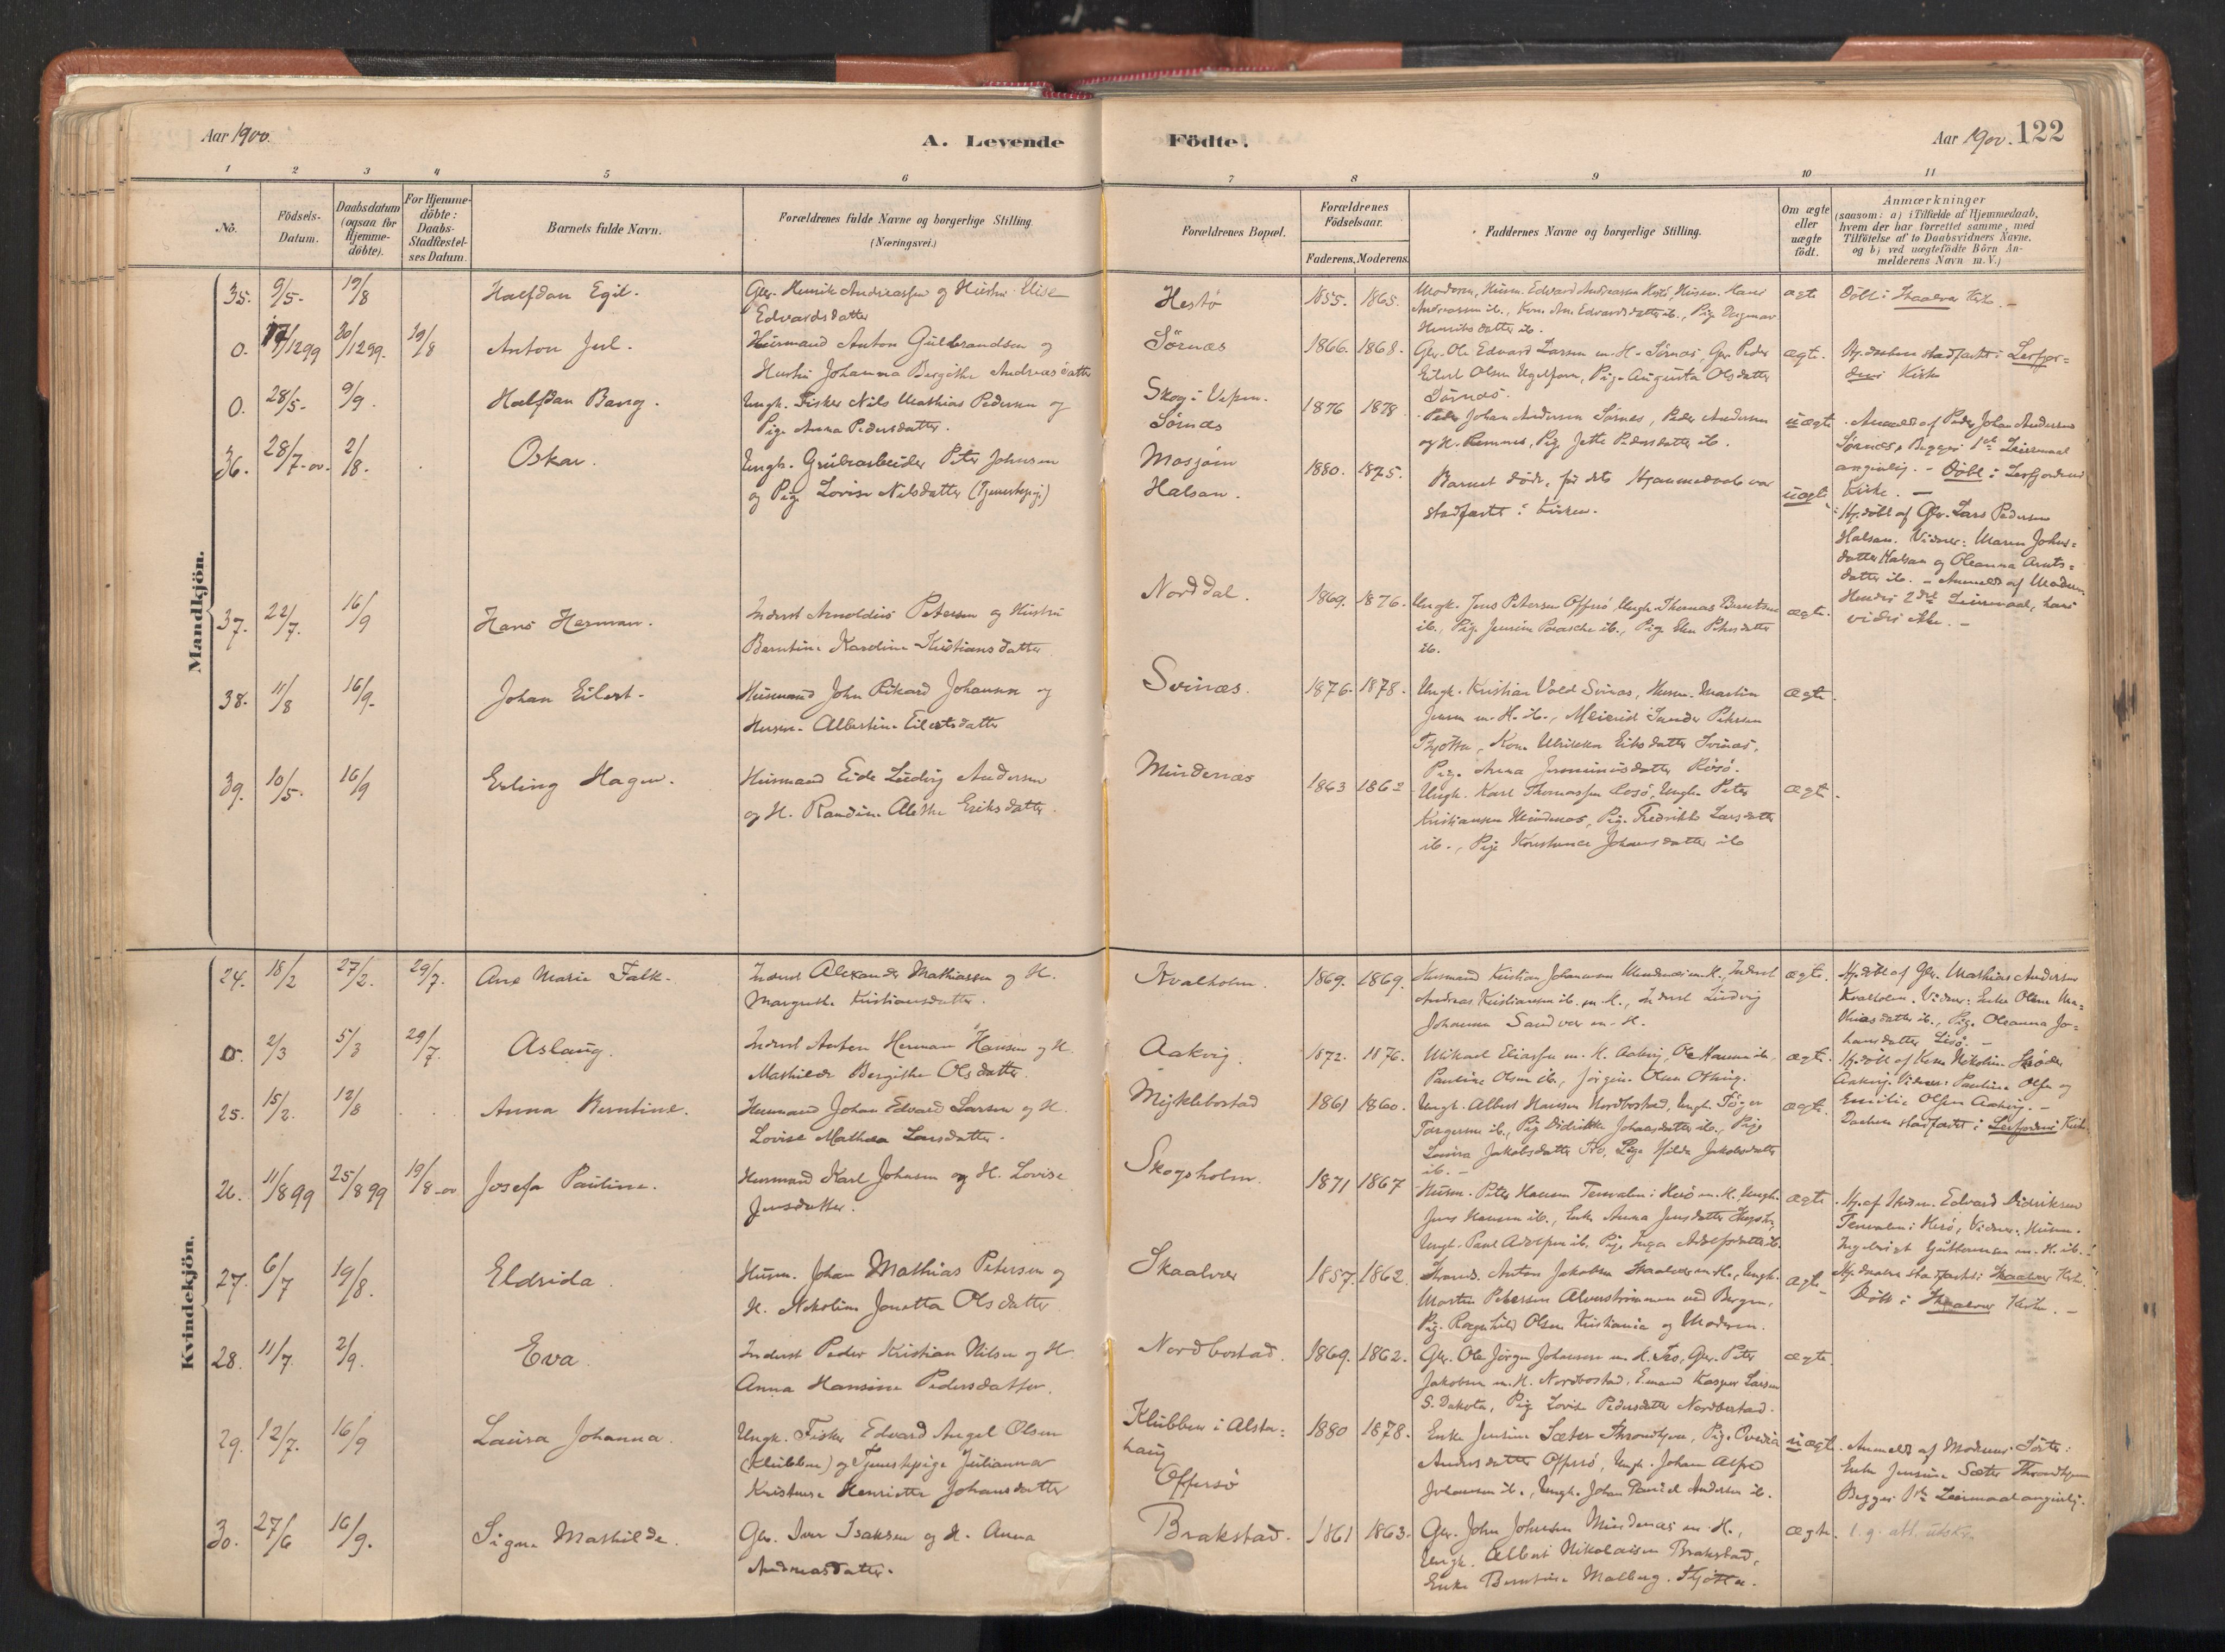 Aar 1900.
A. Levende
Födte.
Aar 1900. 122
1 2 3 4 5 6 7 8 9 10 11
No.
Födsels-
Datum.
Daabsdatum
(ogsaa for
Hjemme-
döbte).
For Hjemme-
döbte:
Daabs-
Stadfæstel-
ses Datum.
Barnets fulde Navn.
Forældrenes fulde Navne og borgerlige Stilling
(Næringsvei.)
Forældrenes Bopæl.
Forældrenes
Födselsaar.
Faderens. Moderens.
Faddernes Navne og borgerlige Stilling.
Om ægte
eller
uægte
födt.
Anmærkninger
(saasom: a) i Tilfælde af Hjemmedaab,
hvem der har forrettet samme, med
Tilföielse af to Daabsvidners Navne,
og b) ved uægtefödte Börn An-
melderens Navn m. V.)
Mandkjön.
35. 9/5- 19/8
Halfdan Egil.
Gbr. Henrik Andreassen og Hustru Elise
Edvardsdatter
Hestø
1855. 1865.
Moderen, Husm. Edvard Andreassen Hestø, Husm. Hans
Andreassen ib., Kone Ane Edvardsdatter ib., Pige Dagmar
Henriksdatter ib.
ægte
Døbt i Skaalvær Kirke. -
0. 17/1299 30/1299. 19/8
Anton Jul.
Husmand Anton Gulbrandsen og
Hustru Johanna Bergithe Andreasdatter
Sørnæs
1866. 1868.
Gbr. Ole Edvard Larsen m. H. Sørnæs, Gbr. Peder
Eilert Olsen, Pige Augusta Olsdatter
Sørnæs.
ægte.
Hj. daaben stadfæstet i Leirfjor-
dens Kirke
0. 28/5- 9/9.
Halfdan Bang.
Ungk. Fisker Nils Mathias Pedersen og
Pige Anna Pedersdatter.
Skog i Vefsen.
Sørnæs
1876 1878
Peder Johan Andersen Sørnes, Peder Andersen
og H. Remmen, Pige Jette Pedersdatter ib.
uægte
Anmeldt af Peder Johan Andersen
Sørnæs, Begges 1ste Leiermaal
angivelig. - Døbt i Leirfjordens
Kirke. -
36. 28/7-00. 2/8.
Oskar.
Ungk. Grubearbeider Peter Johnsen
og Pige Lovise Nilsdatter (Tjenestepige)
Mosjøen
Halsan.
1880. 1875.
Barnet døde, før dets Hjemmedaab var
stadfæstet i Kirken.
uægte
Hj. døbt af Gbr. Lars Pedersen
Halsan. Vidner: Maren Johns-
datter Halsan og Oleanna Arnts-
datter ib. - Anmeldt af Moderen.
Hendes 2det Leiermaal, hans
vides ikke. -
37. 22/7. 16/9
Hans Herman.
Inderst Arnoldus Petersen og Hustru
Berntine Karoline Kristiansdatter
Norddal.
1869. 1876.
Ungk. Jens Petersen Offersø, Ungk. Thomas Berntsen
ib., Pige Jensine Paasche ib., Pige Elen Petersdatter
ib.
ægte.
38. 11/8 16/9-
Johan Eilert.
Husmand John Rikard Johansen og
Hustru Albertine Eilertsdatter
Svinæs.
1876. 1878.
Ungk. Kristian Vold Svinæs, Husm. Martin
Jensen m. H. ib., Meierist Sander Petersen
Thjøtta, Kone Ulrikka Eiksdatter Svinæs,
Pige Anna Rösö.
ægte.
39. 10/5. 16/9
Erling Hagen.
Husmand Eide Ludvig Andersen
og H. Randine Alethe Eriksdatter
Mindenæs
1863 1862
Ungk. Karl Thomassen Rosø, Ungk. Peter
Kristiansen Mindenæs, Pige Fredrikke Larsdatter
ib., Pige Konstance Johansdatter ib
ægte.
Kvindekjön.
24. 18/2 27/2. 29/7.
Ane Marie Falk.
Inderst Alexander Mathiassen og H.
Margrethe Kristiansdatter.
Kvalholm.
1869. 1869.
Husmand Kristian Johansen Mindenæs m. H., Inderst
Andreas Kristiansen ib. m. H., Inderst Ludvig
Johansen Sandvær m. H.
ægte.
Hj. døbt af Gbr. Mathias Andersen
Kvalholm. Vidner: Enke Olene Ma-
thiasdatter ib., Pige Oleanna Jo-
hansdatter Lisø. -
0. 2/3 5/3 29/7.
Aslaug.
Inderst Anton Herman Hansen og H.
Mathilde Bergithe Olsdatter.
Aakvig.
1872. 1876.
Mikael Eliassen m. H. Aakvig, Ole Hansen ib.,
Pauline Olsen ib., Jørgine Olsen Othing.
ægte.
Hj. døbt af Kone Nikoline Skøder
Aakvig. Vidner: Pauline Olsen og
Emilie Olsen Aakvig. -
Daaben stadfæstet i Leirfjordens Kirke.
25. 15/2. 12/8
Anna Berntine.
Husmand Johan Edvard Larsen og H.
Lovise Mathea Larsdatter.
Myklebostad
1861 1860.
Ungk. Albert Hansen Nordbostad, Ungk. Töger
Torgersen ib., Pige Didrikke Johansdatter ib., Pige
Lovisa Jakobsdatter Tro, Pige Hilda Jakobsdatter
ib. -
ægte.
26. 11/899 25/899 19/8-00
Josefa Pauline.
Husmand Karl Johnsen og H. Lovise
Jensdatter.
Skogsholm.
1871 1867
Husm. Peter Hansen Tenvalen i Herø m. H., Ungk.
Jens Hansen ib., Enke Anna Jensdatter Skogsh.,
Ungk. Paul Adolfsen ib., Pige Inga Adolfsdatter ib.
ægte.
Hj. af Husm. Edvard Didriksen
Tenvalen i Herø, Vidner: Husm.
Ingebrigt Guttormsen m. H. ib.
Hj. daaben stadfæstet i Skaalvær Kirke.
27. 6/7 19/8.
Eldrida
Husm. Johan Mathias Petersen og
H. Nikoline Jonetta Olsdatter
Skaalvær
1857. 1862.
Strands. Anton Jakobsen Skaalvær m. H., Ungk.
Morten Petersen Alverstrømmen ved Bergen,
Pige Ragnhild Olsen Kristiania og Moderen.
ægte
Døbt i Skaalvær Kirke. -
28. 11/7. 2/9.
Eva
Inderst Peder Kristian Nilsen og H.
Anna Hansine Pedersdatter.
Nordbostad.
1869. 1862.
Gbr. Ole Jörgen Johansen m. H. Tro, Gbr. Peter
Jakobsen m. H. Nordbostad, E.mand Kasper Larsen
S. Dakota, Pige Lovise Pedersdatter Nordbostad.
ægte.
29. 12/7. 16/9
Laura Johanna.
Ungk. Fisker Edvard Angel Olsen
(Klubben) og Tjenestepige Julianna
Kristense Henriette Johansdatter
Klubben i Alsta-
haug
Offersø
1880 1878.
Enke Jensine Sæter Throndhjem, Pige Ovedia
Andersdatter Offersø, Ungk. Johan Alfred
Johansen ib., Ungk. Johan Daniel Andersen ib.
uægte.
Anmeldt af Moderens Søster:
Enke Jensine Sæter Throndhjem
Begges 1ste Leiermaal angivelig.
30. 27/6 16/9.
Signe Mathilde.
Gbr. Iver Isaksen og H. Anna
Andreasdatter.
Brakstad.
1861 1863.
Gbr. John Johnsen Mindenæs m. H.,
Ungk. Albert Nikolaisen Brakstad,
Enke Berntine Malberg. Thjøtta.
ægte.
l. g. att. utskr.